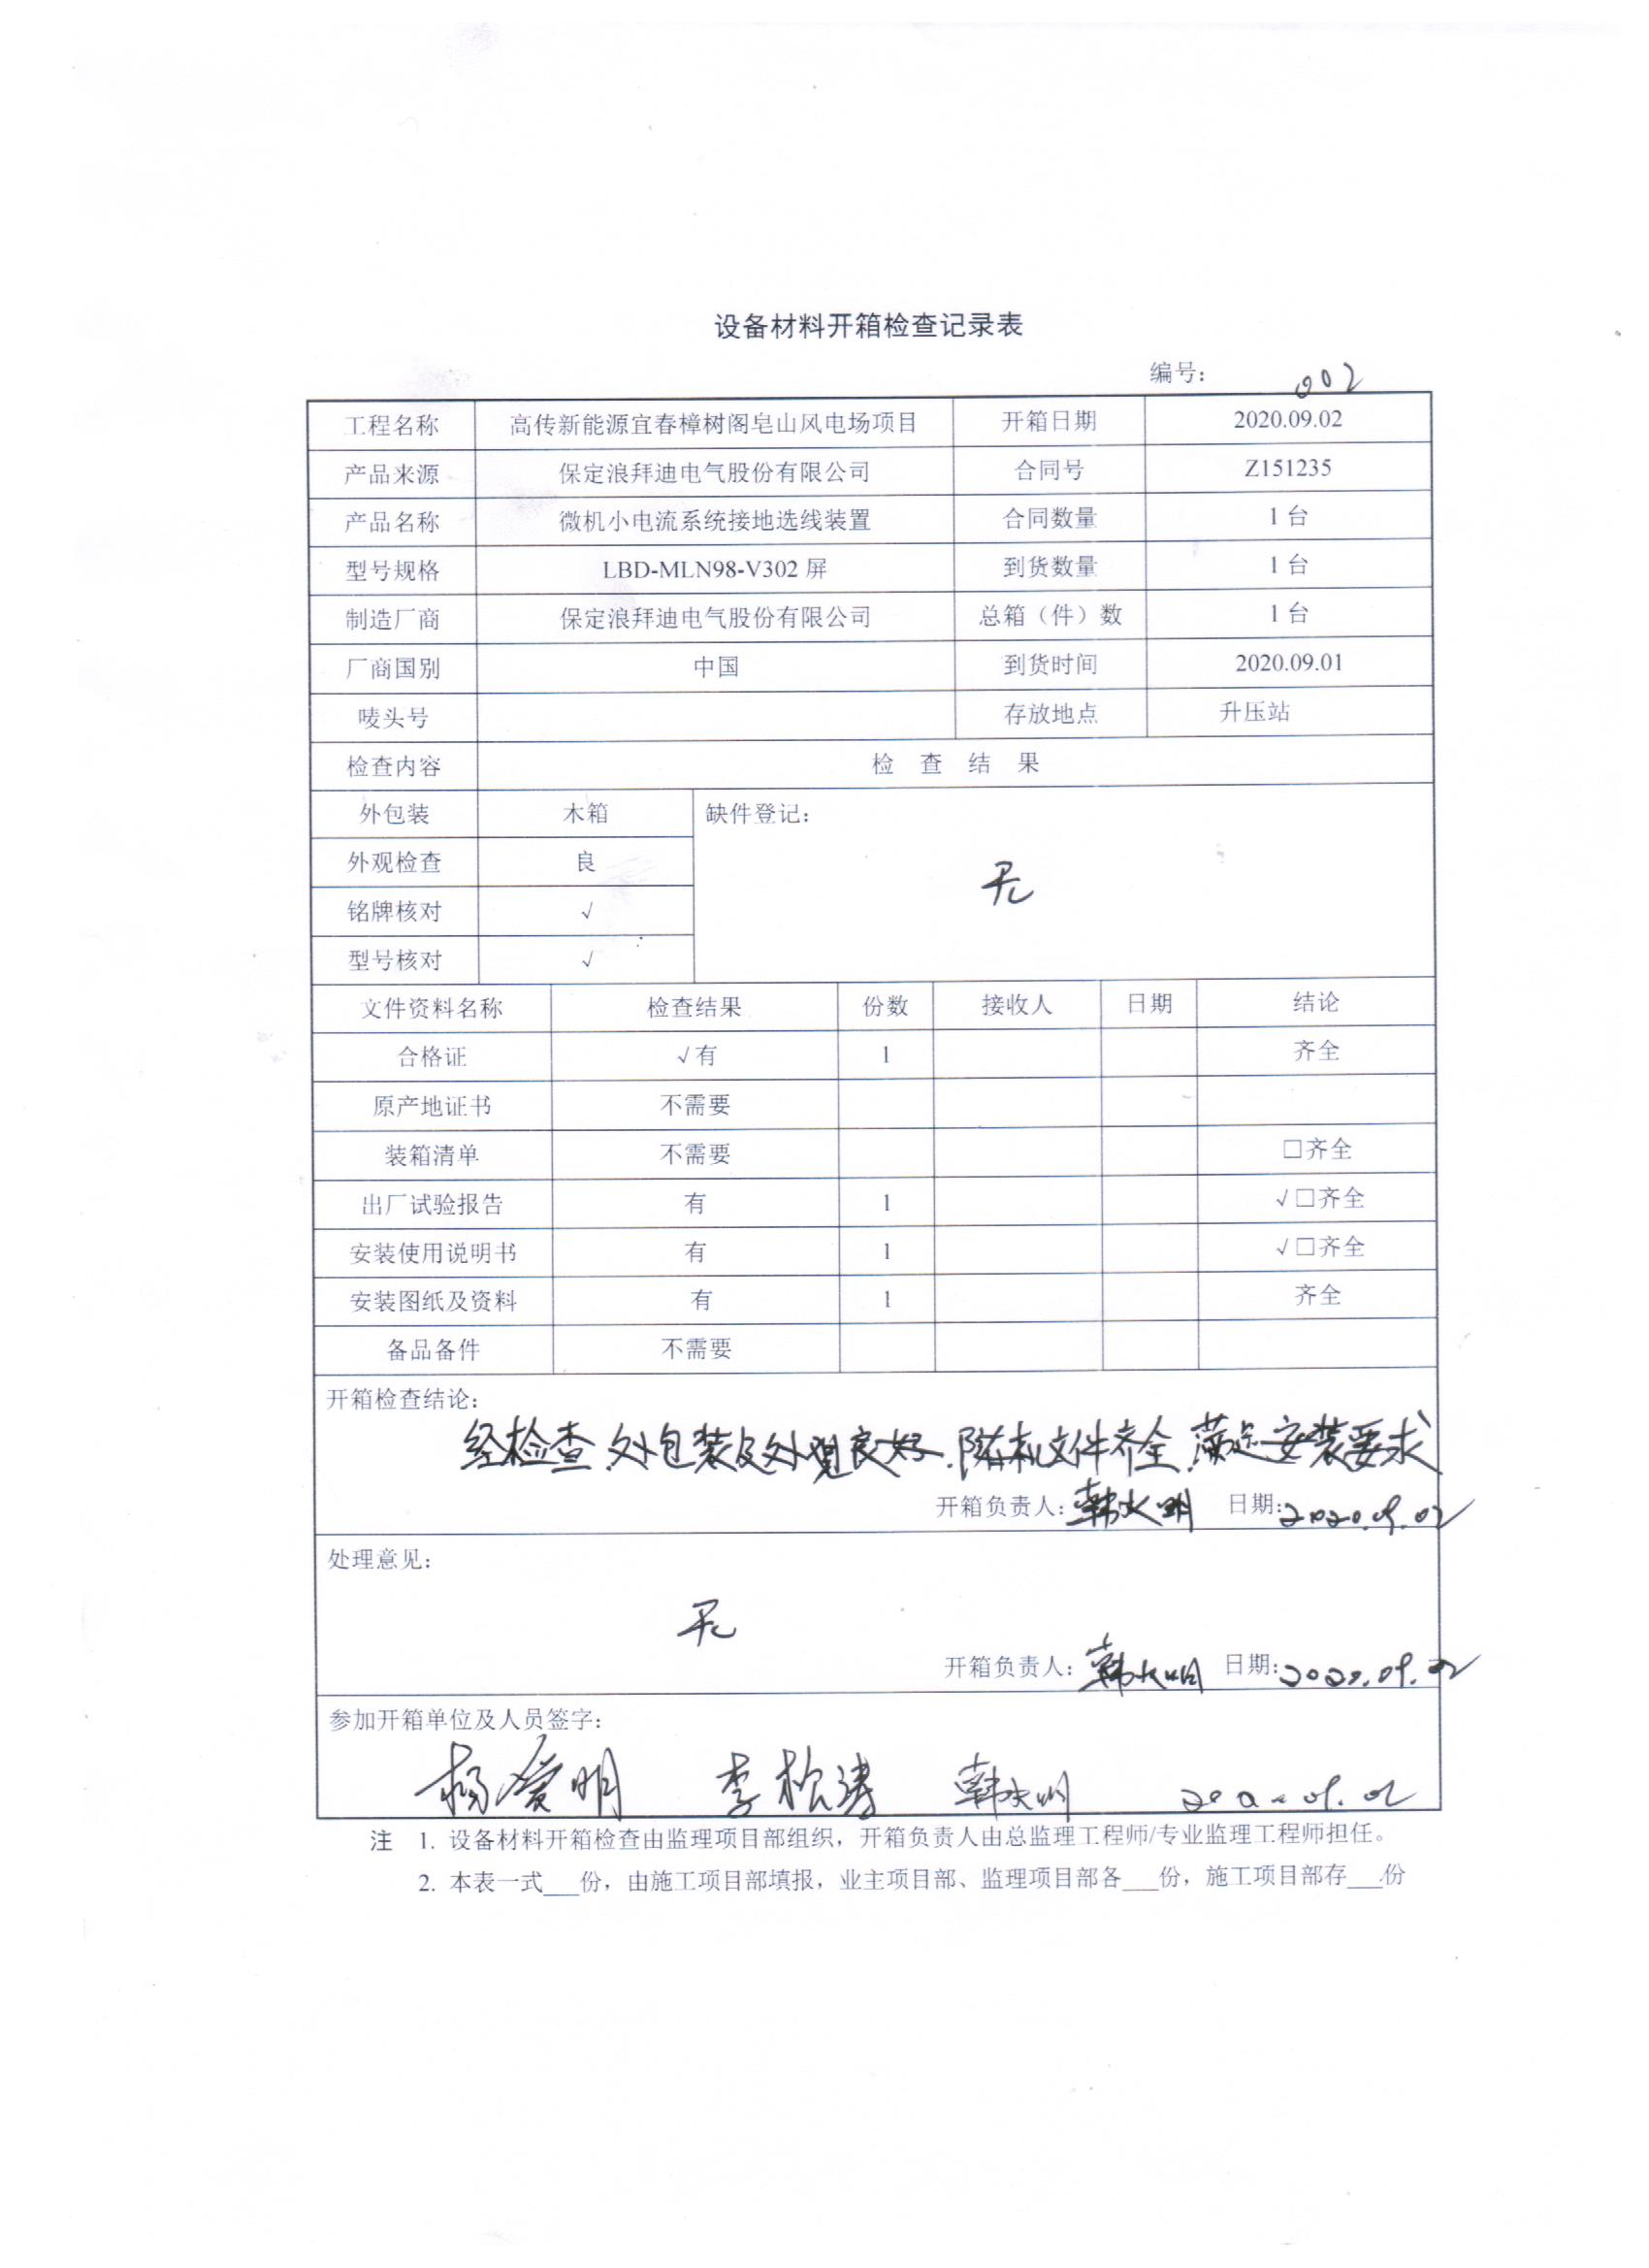 设备材料开箱检查记录表
编号： 002
工程名称 高传新能源宜春樟树阁皂山风电场项目 开箱日期 2020.09.02
产品来源 保定浪拜迪电气股份有限公司 合同号 Z151235
产品名称 微机小电流系统接地选线装置 合同数量 1 台
型号规格 LBD-MLN98-V302 屏 到货数量 1 台
制造厂商 保定浪拜迪电气股份有限公司 总箱（件）数 1 台
厂商国别 中国 到货时间 2020.09.01
唛头号 存放地点 升压站
检查内容 检 查 结 果
外包装 木箱 缺件登记：
外观检查 良 无
铭牌核对 √
型号核对 √
文件资料名称 检查结果 份数 接收人 日期 结论
合格证 √有 1 齐全
原产地证书 不需要
装箱清单 不需要 □齐全
出厂试验报告 有 1 √□齐全
安装使用说明书 有 1 √□齐全
安装图纸及资料 有 1 齐全
备品备件 不需要
开箱检查结论：
经检查，外包装及外观良好，随机文件齐全，满足安装要求
开箱负责人： 日期：2020.09.02
处理意见：
无
开箱负责人： 日期：2020.09.02
参加开箱单位及人员签字：
杨爱明 李松涛
注 1. 设备材料开箱检查由监理项目部组织，开箱负责人由总监理工程师/专业监理工程师担任。
2. 本表一式___份，由施工项目部填报，业主项目部、监理项目部各___份，施工项目部存___份